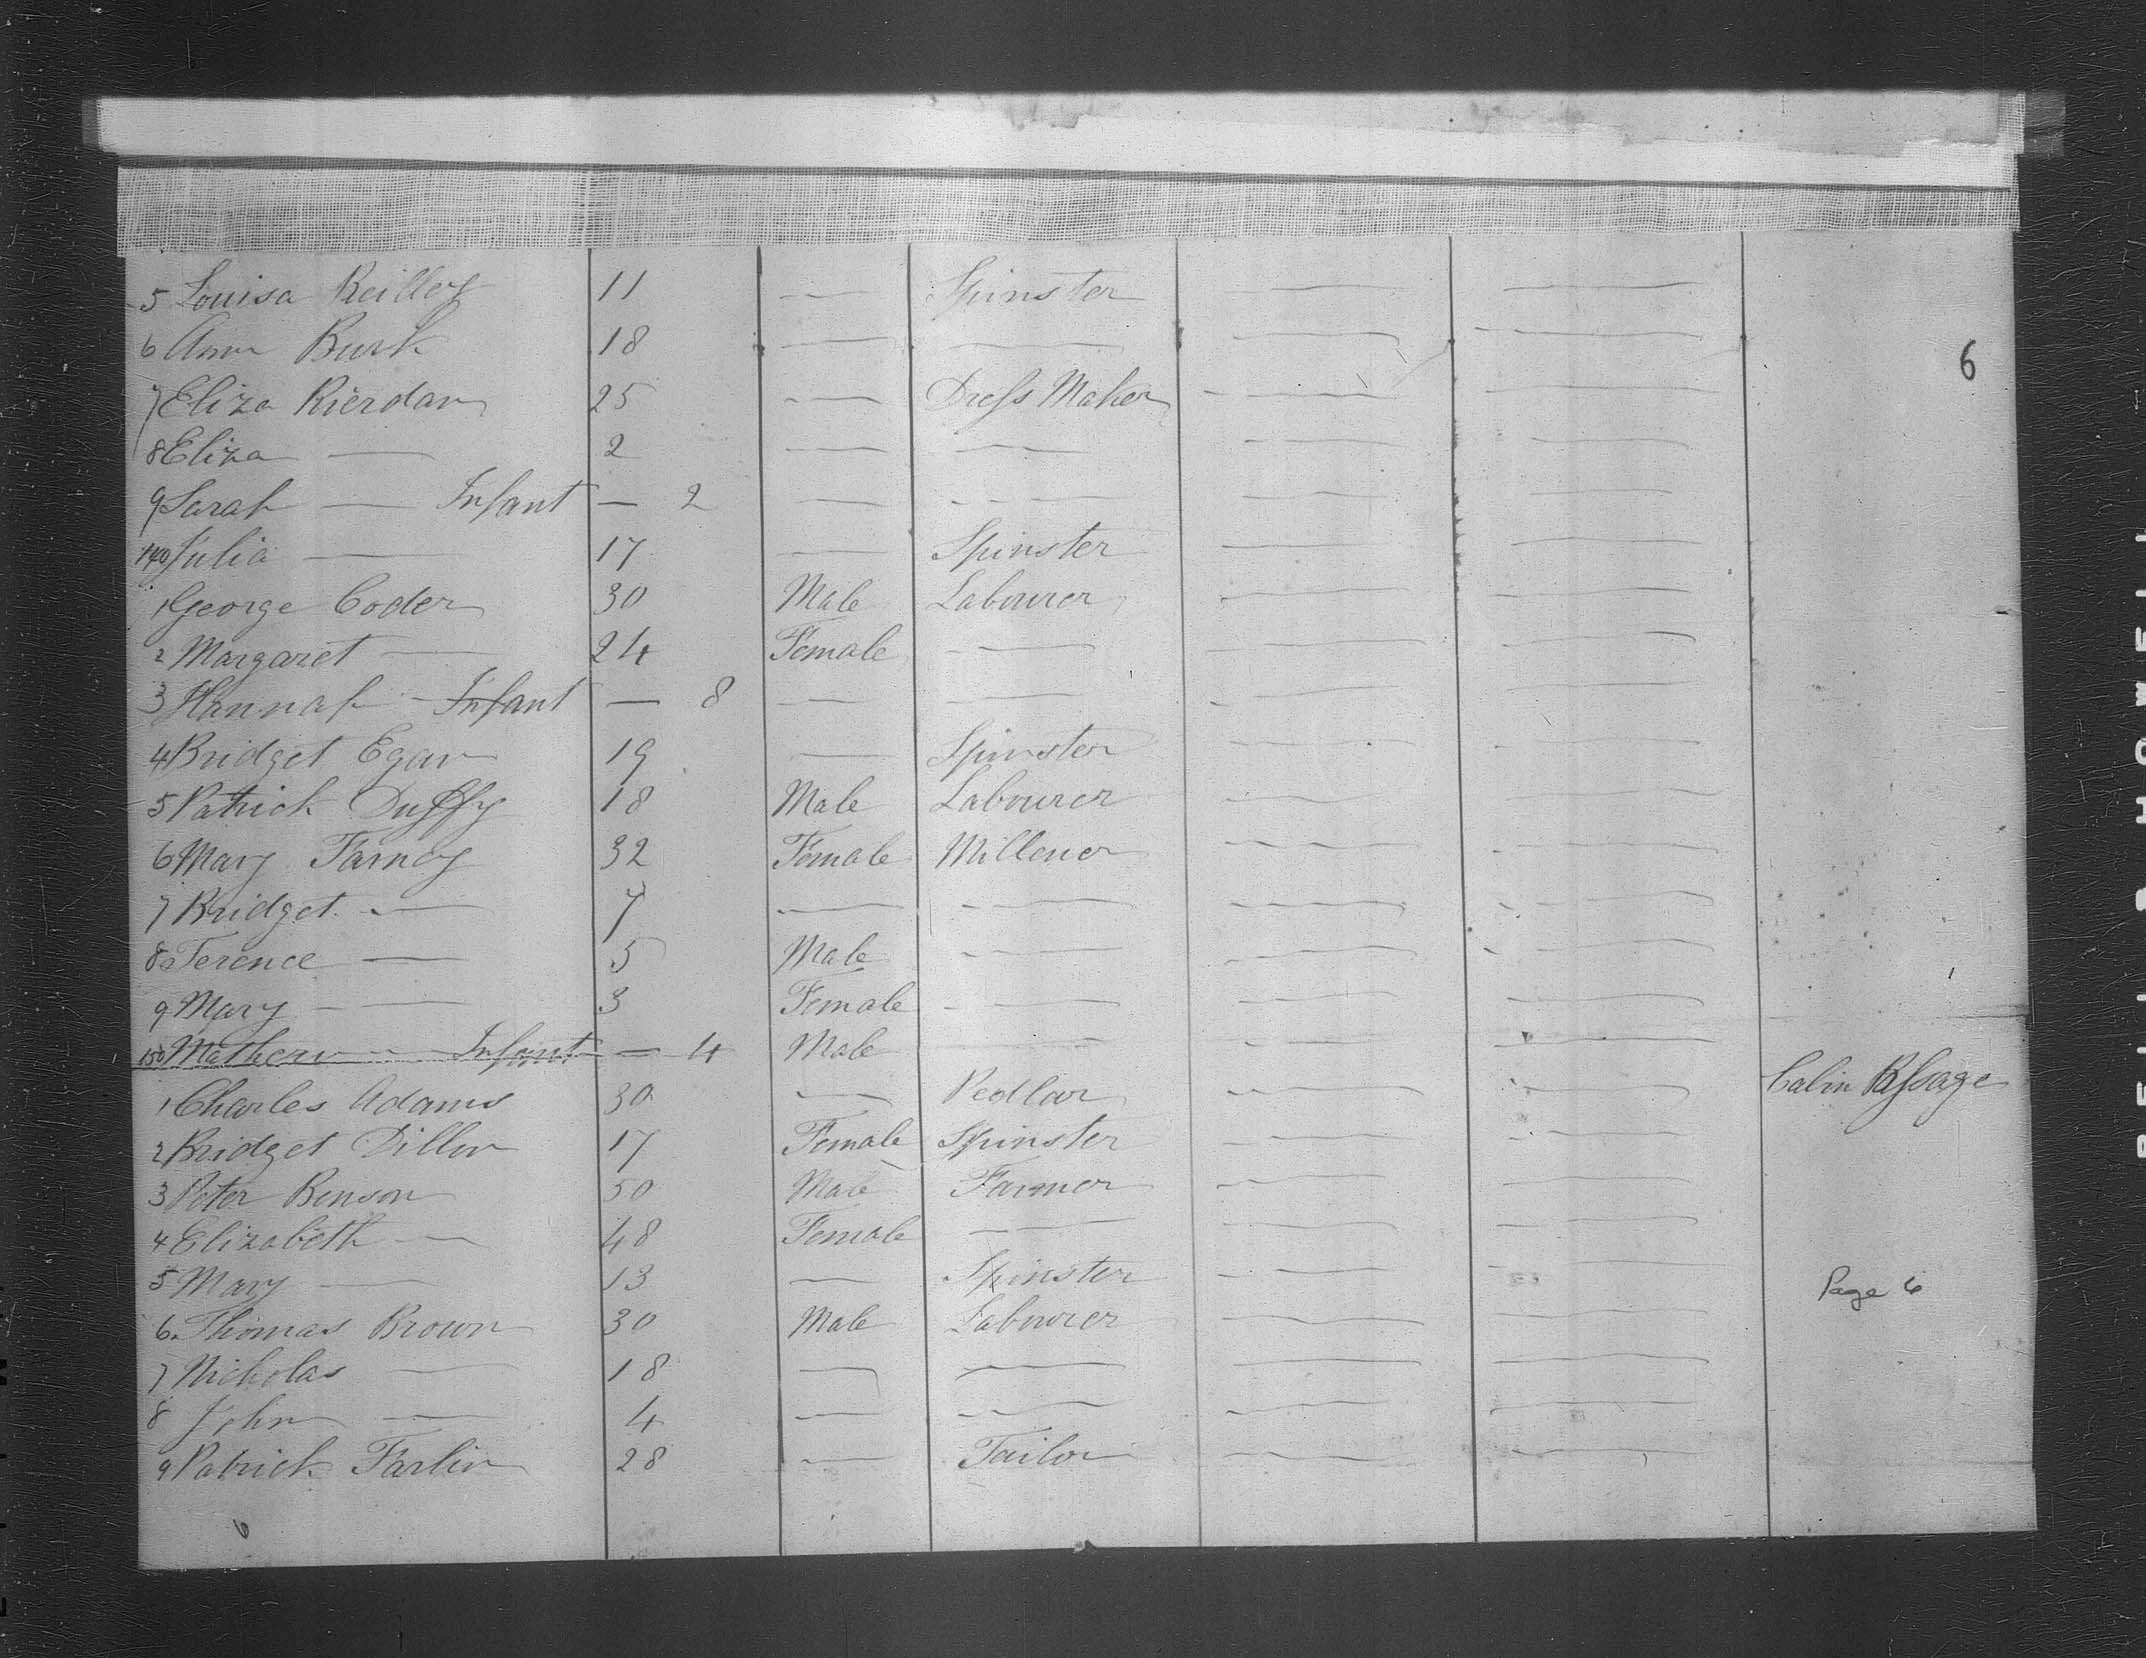 5 Louisa Reilley 11 — Spinster — —
6 Ann Burk 18 — — — —
7 Eliza Rierdan 25 — Dress Maker — —
8 Eliza — 2 — — — —
9 Sarah — Infant — 2 — — — —
140 Julia — 17 — Spinster — —
1 George Coder 30 Male Labourer — —
2 Margaret — 24 Female — — —
3 Hannah — Infant — 8 — — — —
4 Bridget Egan 19 — Spinster — —
5 Patrick Duffy 18 Male Labourer — —
6 Mary Farney 32 Female Millener — —
7 Bridget — 7 — — — —
8 Terence — 5 Male — — —
9 Mary — 3 Female — — —
150 Mathew — Infant — 4 Male — — —
1 Charles Adams 30 — Pedlar — — Cabin Passage
2 Bridget Dillon 17 Female Spinster — —
3 Peter Benson 50 Male Farmer — —
4 Elizabeth — 48 Female — — —
5 Mary — 13 — Spinster — —
6 Thomas Brown 30 Male Labourer — —
7 Nicholas — 18 — — — —
8 John — 4 — — — —
9 Patrick Farlin 28 — Tailor — —
6
6
Page 6
BELL & HOWELL